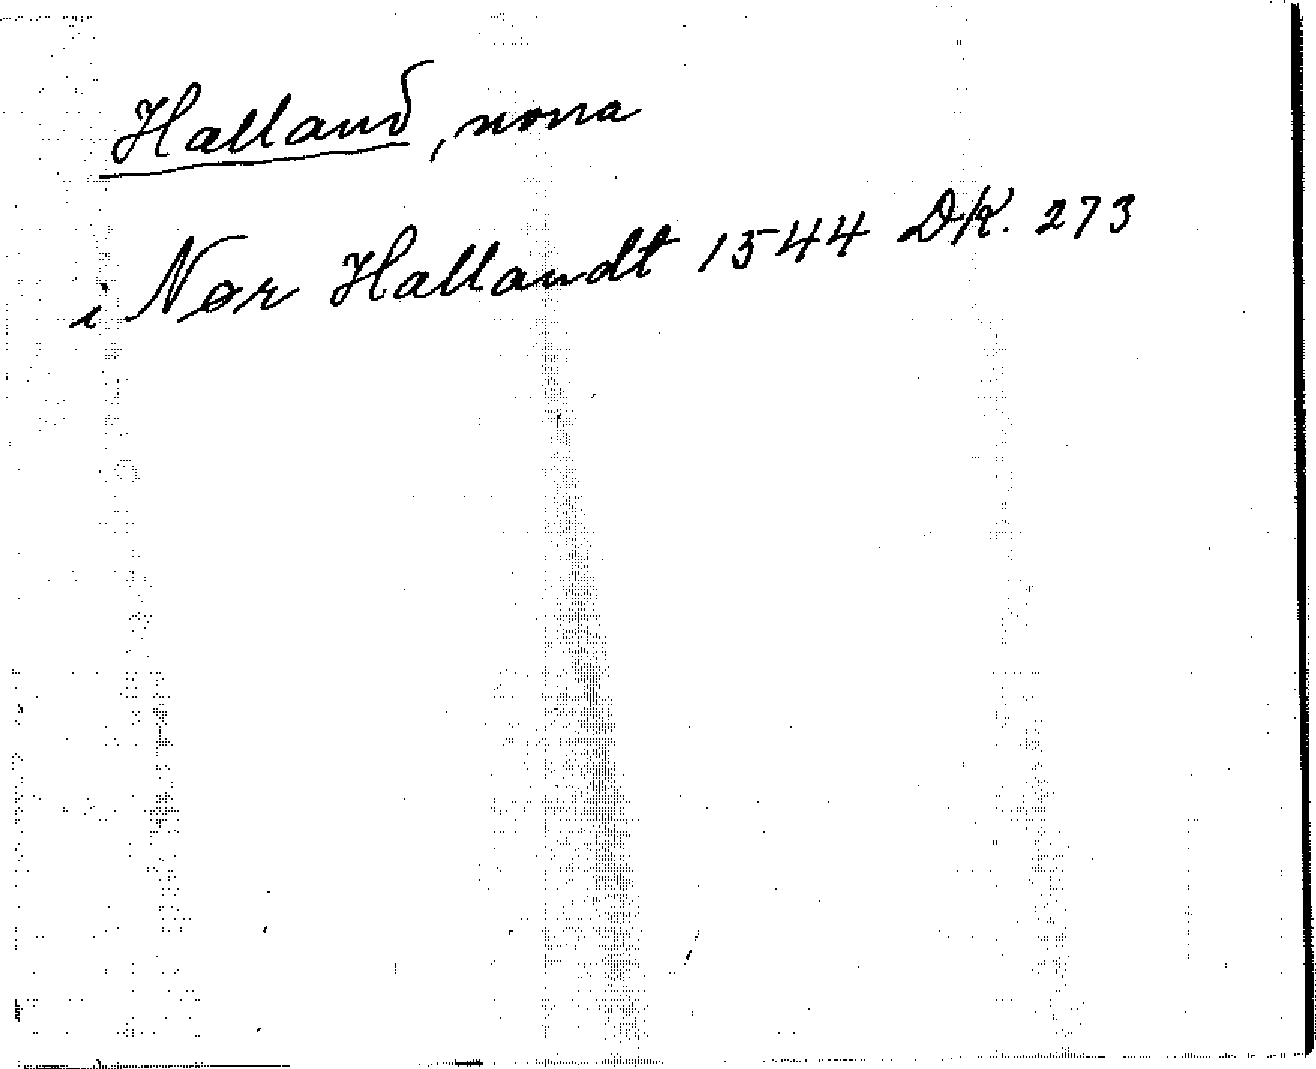 Halland, norra
i Nør Hallandt 1544 DK. 273